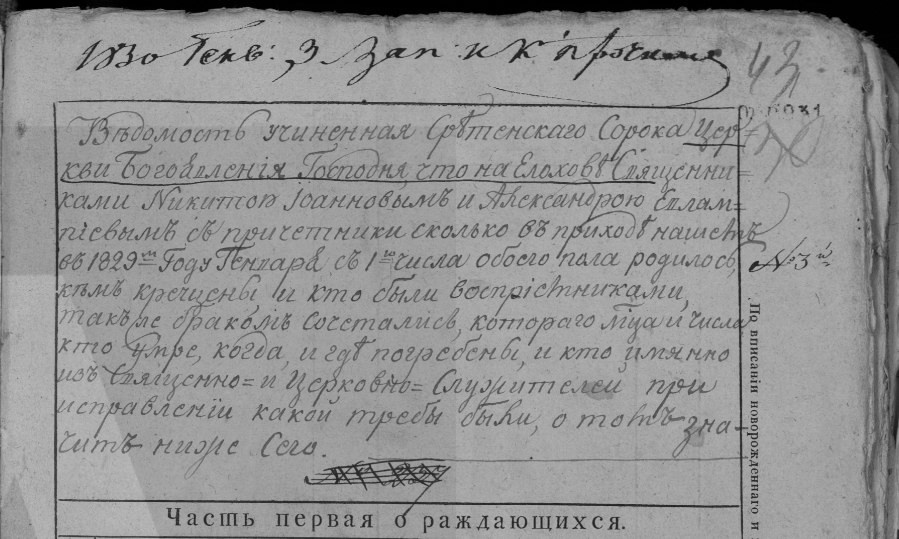 1830 Генв: 3 Зап: и к прочими
43
Вѣдомость учиненная Срѣтенскаго Сорока Цер=
кви Богоявленія Господня, что на Елоховѣ Священни=
ками Никитою Іоанновымъ и Александромъ Евлам=
піевымъ съ причетники сколько въ приходѣ нашемъ
въ 1829мъ Году Генваря съ 1го числа обоего пола родилось,
кѣмъ крещены и кто были воспріемниками,
такъже бракомъ сочетались, котораго мца и числа
кто умре, когда, и гдѣ погребены, и кто имянно
изъ Священно= и Церковно= Служителей при
исправленіи какой требы были, о томъ зна-
читъ ниже сего.
№ 3й
По вписаніи новорожденнаго и
Часть первая о раждающихся.